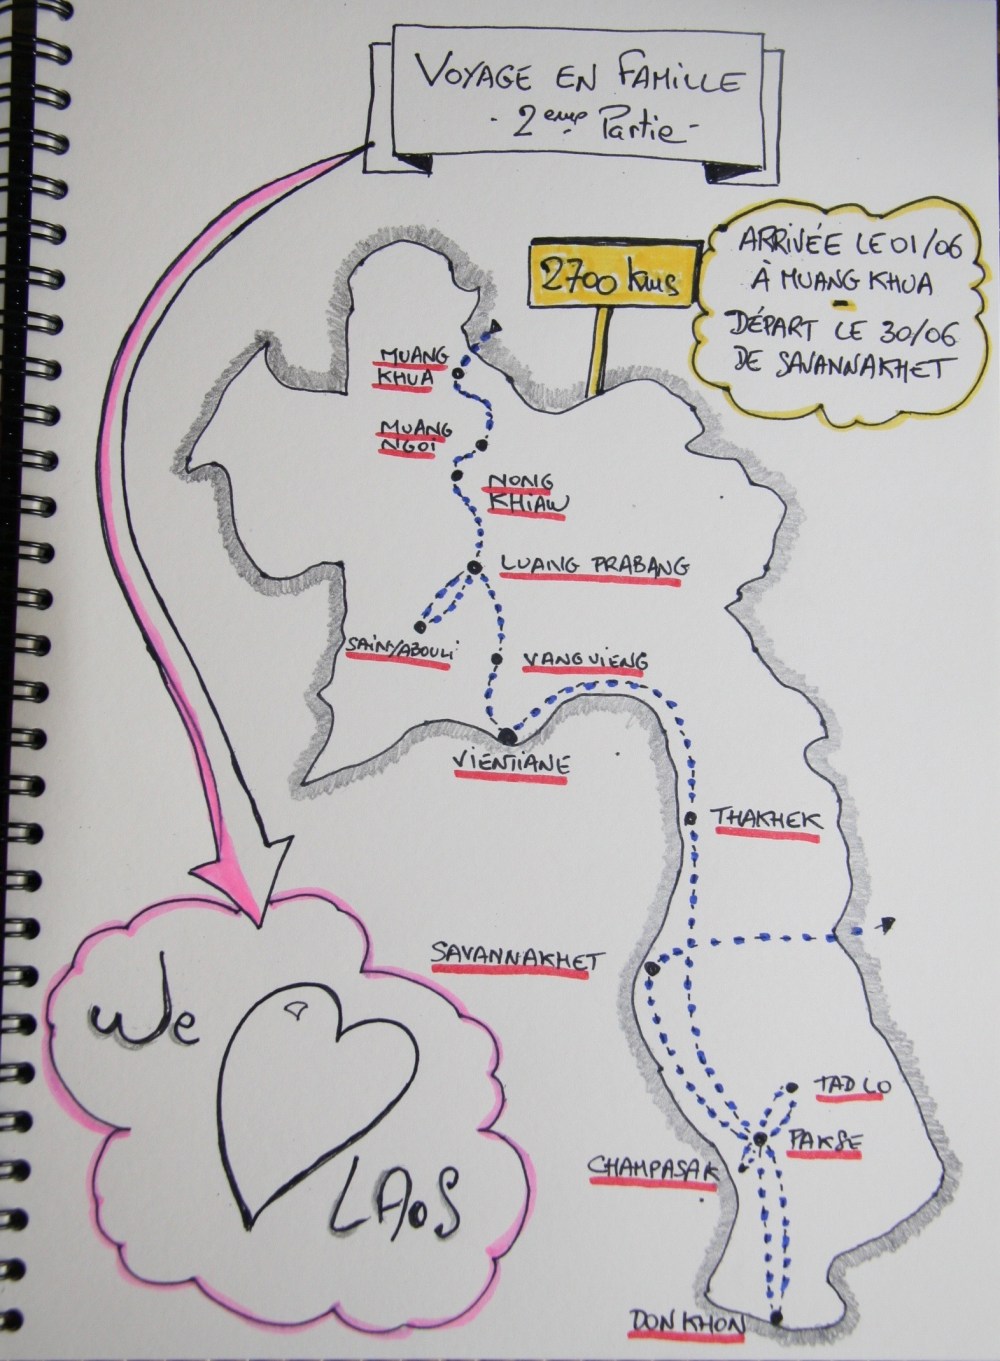 VOYAGE EN FAMILLE
- 2eme Partie -
2700 kms
ARRIVÉE LE 01/06
À MUANG KHUA
-
DÉPART LE 30/06
DE SAVANNAKHET
MUANG
KHUA
MUANG
NGOI
NONG
KHIAW
LUANG PRABANG
SAINYABOULI
VANG VIENG
VIENTIANE
THAKHEK
SAVANNAKHET
TAD LO
PAKSE
CHAMPASAK
DON KHON
We
LAOS